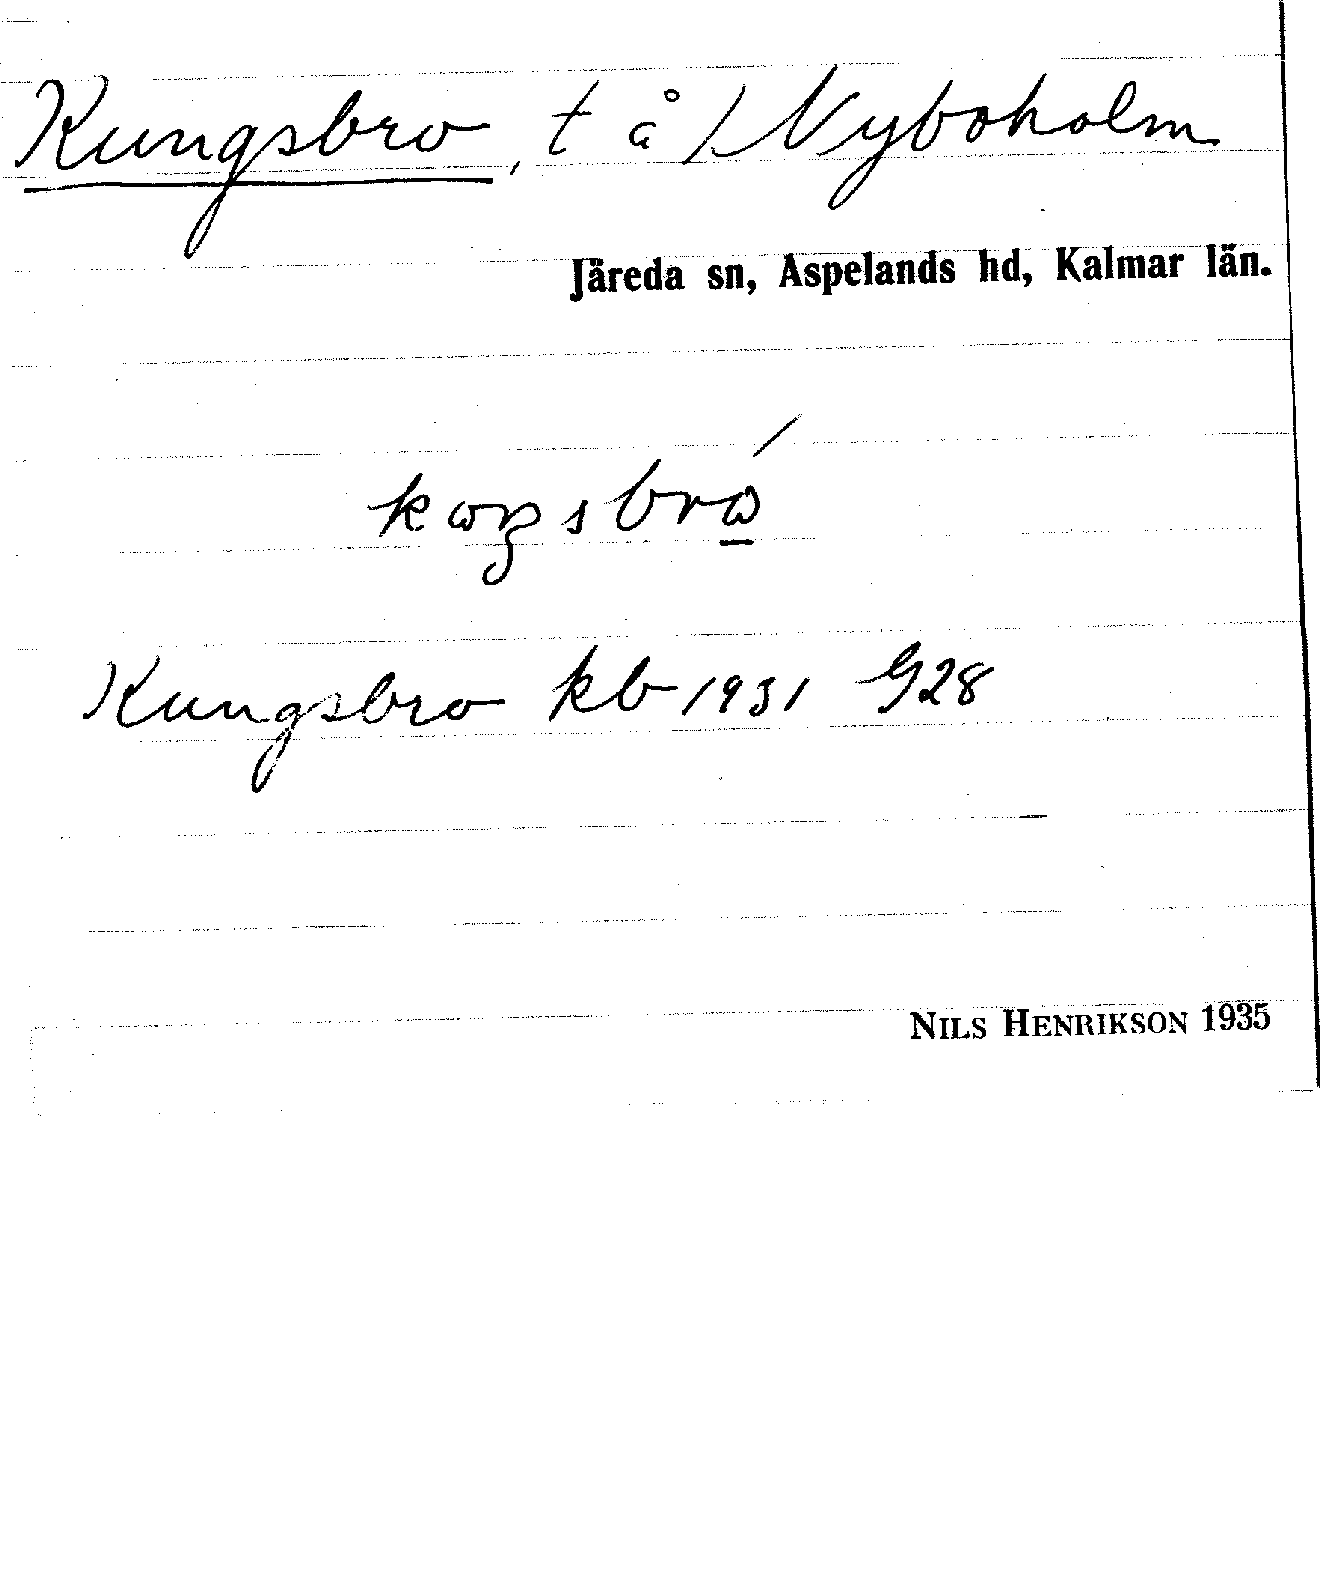 Kungsbro, t å 1 Nyboholm
Järeda sn, Aspelands hd, Kalmar län.
Kungsbro kb 1931 G28
NILS HENRIKSON 1935